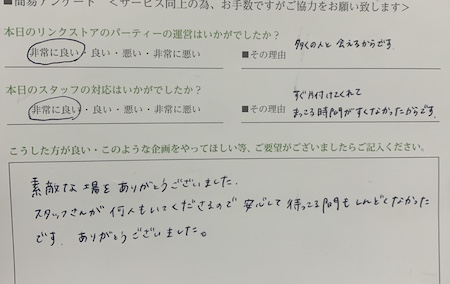 ■簡易アンケート ＜サービス向上の為、お手数ですがご協力をお願い致します＞
本日のリンクストアのパーティーの運営はいかがでしたか？
非常に良い・良い・悪い・非常に悪い
■その理由
多くの人と会えるからです.
本日のスタッフの対応はいかがでしたか？
非常に良い・良い・悪い・非常に悪い
■その理由
すぐ片付けてくれて
まってる時間がすくなかったからです.
こうした方が良い・このような企画をやってほしい等、ご要望がございましたらご記入ください。
素敵な場をありがとうございました.
スタッフさんが何人もいてくださるので安心して待ってる間もしんどくなかった
です. ありがとうございました。